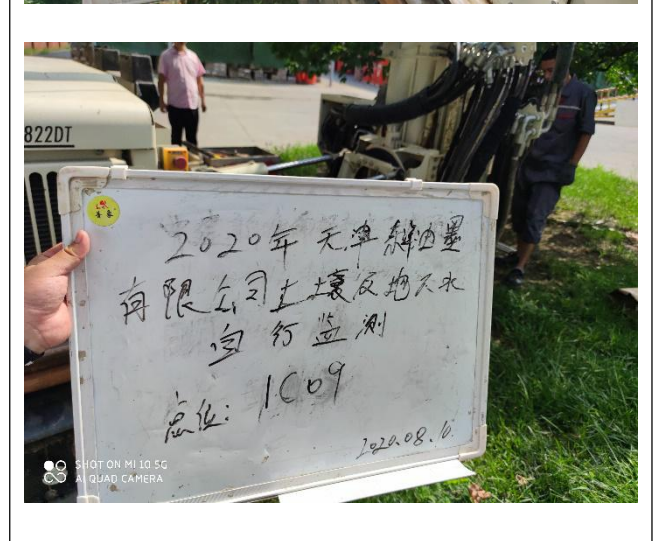 822DT
2020年天津油墨
有限公司土壤及地下水
自行监测
点位: 1C09
2020.08.10.
SHOT ON MI 10 5G
AI QUAD CAMERA